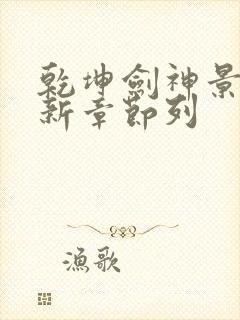 乾坤劍神景
新章節列
漁歌